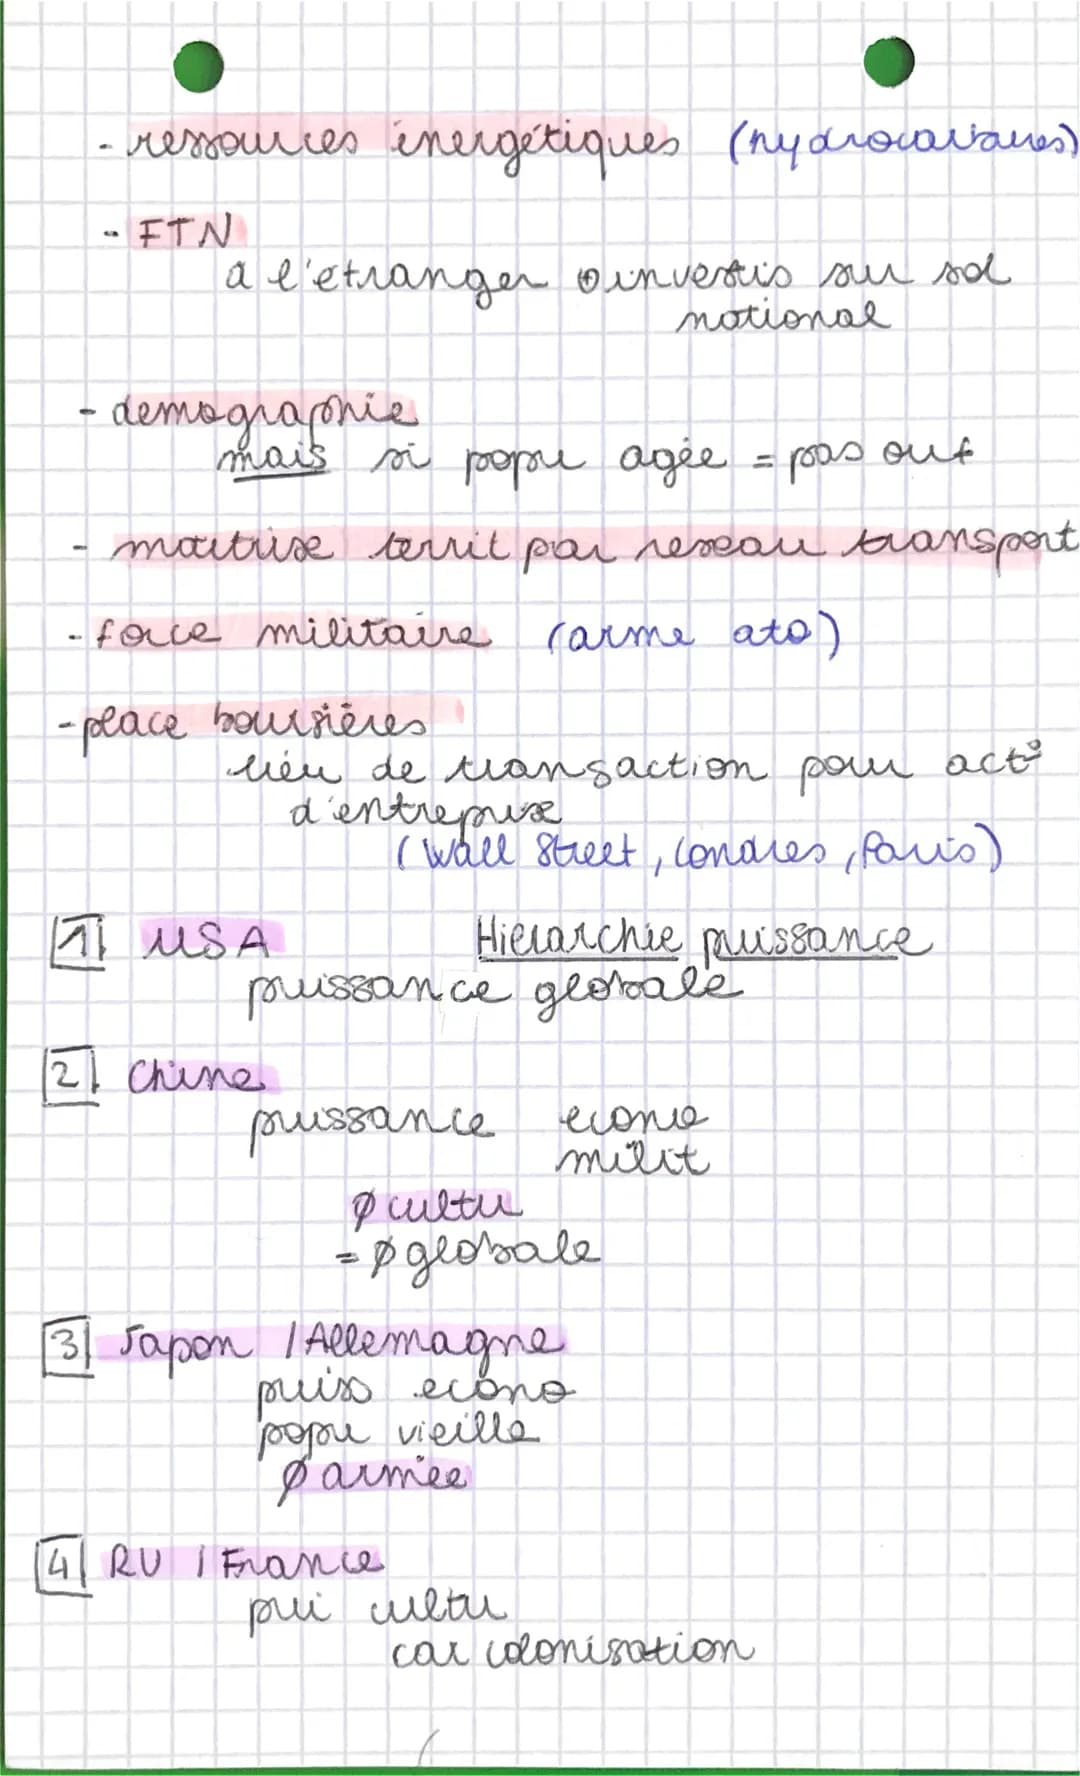 - ressources énergétiques (hydrocarbures)
- FTN
à l'étranger ⊕ investis sur sol
national
- demographie
mais si popu agée = pas out
- maitrise territ par reseau transport
- force militaire (arme ato)
- place boursières
lieu de transaction pour act°
d'entreprise
(Wall Street, Londres, Paris)
1 USA Hierarchie puissance
puissance globale
2 Chine
puissance econo
milit
∅ cultu
= ∅ globale
3 Japon / Allemagne
puiss econo
popu vieille
∅ armée
4 RU / France
pui cultu
car colonisation